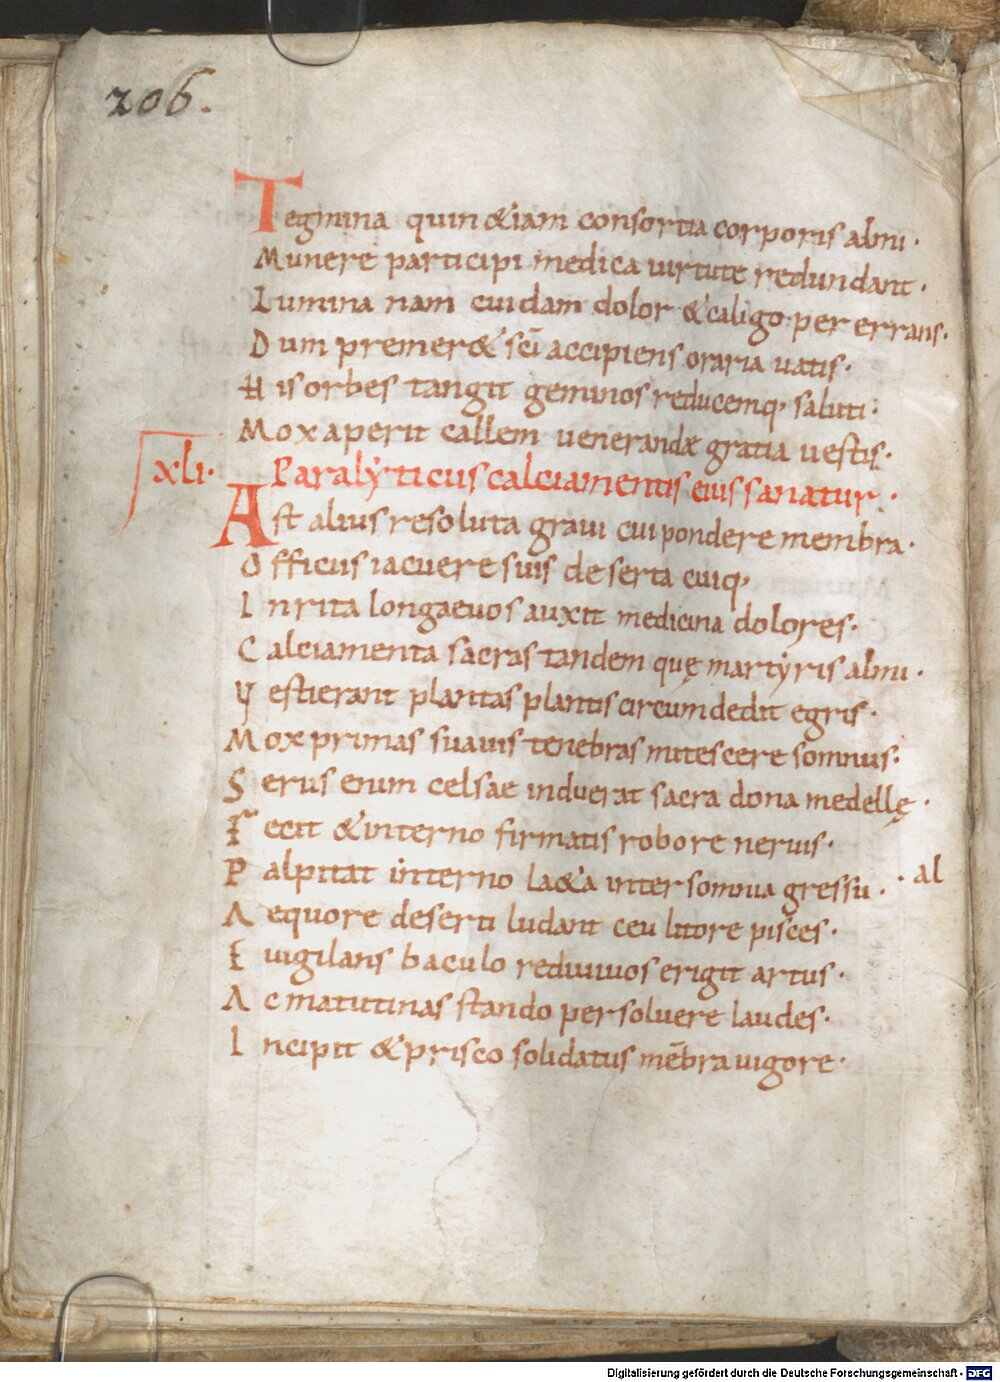 206.
Tegmina quin &iam consortia corporis almi·
Munere participi medica uirtute redundant·
Lumina nam cuidam dolor & caligo per errans·
Dum premer& sc̄i accipiens oraria uatis·
His orbes tangit geminos reducemq, saluti·
Mox aperit callem uenerandæ gratia uestis·
xli· Paralẏticus calciamentis eius sanatur·
Ast alius resoluta graui cui pondere membra·
Officus iacuere suis deserta cuiq,
Inrita longaeuos auxit medicina dolores·
Calciamenta sacras tandem quę martẏris almi·
Vestierant plantas plantis circumdedit egris·
Mox primas suauis tenebras mitescere somnus·
Serus enim celsae induerat sacra dona medellę·
Fecit & interno firmatis robore neruis·
Palpitat interno la&a inter somnia gressu· ·al
Aequore deserti ludant ceu litore pisces·
Euigilans baculo rediuiuos erigit artus·
Ac matutinas stando persoluere laudes·
Incipit & prisco solidatus mēbra uigore·
Digitalisierung gefördert durch die Deutsche Forschungsgemeinschaft - DFG